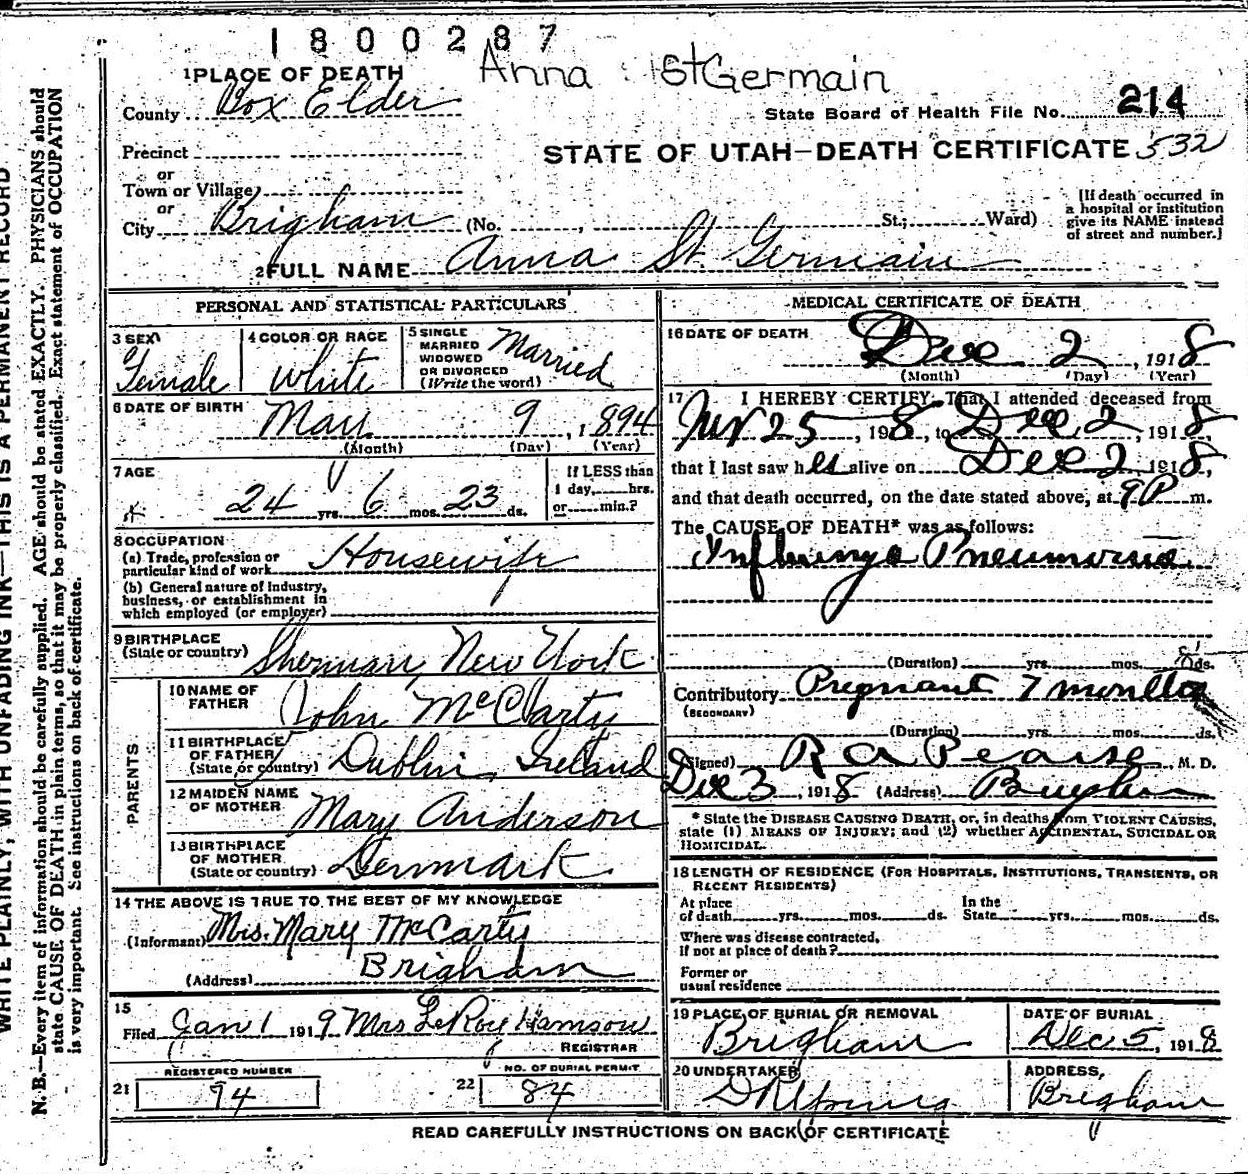 1800287
Anna StGermain
1 PLACE OF DEATH
County Box Elder
State Board of Health File No. 214
Precinct
or
STATE OF UTAH—DEATH CERTIFICATE 532
Town or Village
or
City Brigham (No. , St.; Ward)
[If death occurred in
a hospital or institution
give its NAME instead
of street and number.]
2 FULL NAME Anna St. Germain
PERSONAL AND STATISTICAL PARTICULARS
3 SEX
Female
4 COLOR OR RACE
White
5 SINGLE
MARRIED
WIDOWED
OR DIVORCED
(Write the word)
Married
6 DATE OF BIRTH
May 9, 1894
(Month) (Day) (Year)
7 AGE
24 yrs. 6 mos. 23 ds.
If LESS than
1 day, hrs.
or min.?
8 OCCUPATION
(a) Trade, profession or
particular kind of work Housewife
(b) General nature of industry,
business, or establishment in
which employed (or employer)
9 BIRTHPLACE
(State or country) Sherman, New York
PARENTS
10 NAME OF
FATHER John McCarty
11 BIRTHPLACE
OF FATHER
(State or country) Dublin, Ireland
12 MAIDEN NAME
OF MOTHER Mary Anderson
13 BIRTHPLACE
OF MOTHER
(State or country) Denmark
14 THE ABOVE IS TRUE TO THE BEST OF MY KNOWLEDGE
(Informant) Mrs. Mary McCarty
(Address) Brigham
15
Filed Jan 1 1919 Mrs LeRoy
REGISTRAR
REGISTERED NUMBER
21 94
NO. OF BURIAL PERMIT
22 84
MEDICAL CERTIFICATE OF DEATH
16 DATE OF DEATH
Dec 2, 1918
(Month) (Day) (Year)
17 I HEREBY CERTIFY, That I attended deceased from
Nov 25, 1918, to Dec 2, 1918,
that I last saw her alive on Dec 2 1918,
and that death occurred, on the date stated above, at 9 P m.
The CAUSE OF DEATH* was as follows:
Influenza Pneumonia
(Duration) yrs. mos. 8 ds.
Contributory Pregnant 7 months
(SECONDARY)
(Duration) yrs. mos. ds.
(Signed) R A Pearse, M. D.
Dec 3, 1918 (Address) Brigham
* State the DISEASE CAUSING DEATH, or, in deaths from VIOLENT CAUSES,
state (1) MEANS OF INJURY; and (2) whether ACCIDENTAL, SUICIDAL OR
HOMICIDAL.
18 LENGTH OF RESIDENCE (FOR HOSPITALS, INSTITUTIONS, TRANSIENTS, OR
RECENT RESIDENTS)
At place
of death yrs. mos. ds.
In the
State yrs. mos. ds.
Where was disease contracted,
If not at place of death?
Former or
usual residence
19 PLACE OF BURIAL OR REMOVAL
Brigham
DATE OF BURIAL
Dec. 5, 1918
20 UNDERTAKER
ADDRESS,
Brigham
READ CAREFULLY INSTRUCTIONS ON BACK OF CERTIFICATE
WRITE PLAINLY, WITH UNFADING INK—THIS IS A PERMANENT RECORD
N. B.—Every item of information should be carefully supplied. AGE should be stated EXACTLY. PHYSICIANS should
state CAUSE OF DEATH in plain terms, so that it may be properly classified. Exact statement of OCCUPATION
is very important. See instructions on back of certificate.